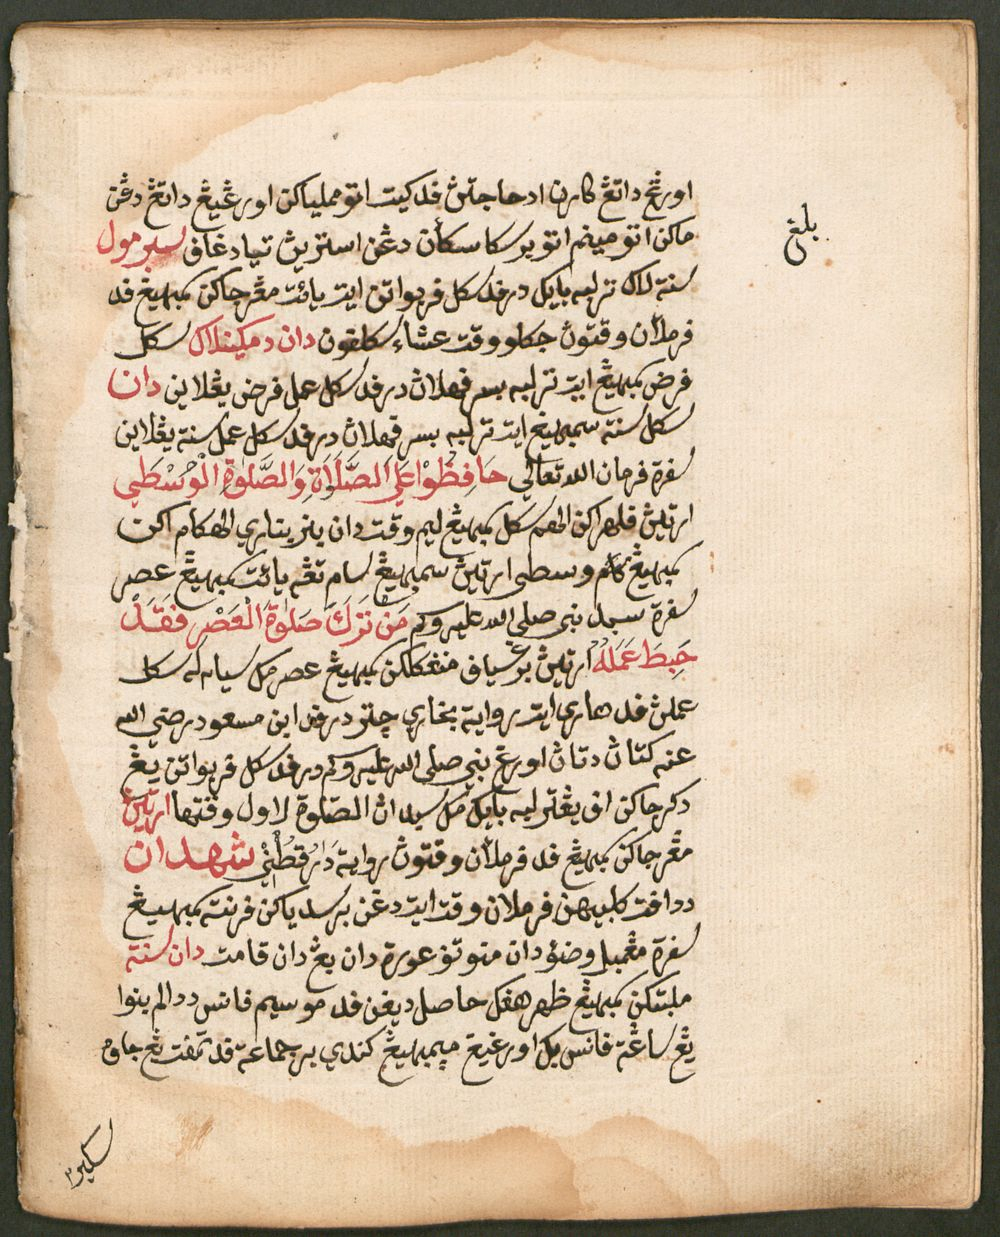 اورڠ داتڠ كارن ادحاجتڽ فد كيت اتو ممليأكن اورڠيڠ داتڠ دڠن
ماكن اتو مينم اتو برسكاسكأن دڠن استريڽ تياد ڠاف سبرمول
بلغ
سنة لاݢ ترلبه بايك درفد سكل فربواتن ايت يأيت مڠرجاكن سمبهيڠ فد
فرملأن وقتوڽ جكلو وقت عشاء سكلفون دان دمكينله سكل
فرض سمبهيڠ ايت ترلبه بسر فهلاڽ درفد سكل عمل فرض يڠلاين دان
سكل سنة سمبهيڠ ايت ترلبه بسر فهلاڽ درفد سكل عمل سنة يڠلاين
سفرة فرمان الله تعالى حَافِظُوْا عَلَى الصَّلَاةِ وَالصَّلٰوةِ الْوُسْطَى
ارتيڽ فلهراكن اولهم سكل سمبهيڠ ليم وقت دان
سمبهيڠ وسطى ارتيڽ سمبهيڠ سام تڠه يأيت سمبهيڠ عصر
سفرة سبد نبي صلى الله عليه وسلم مَن تَرَكَ صَلٰوةَ الْعَصْرِ فَقَدْ
حَبِطَ عَمَلُهُ ارتيڽ برڠسياف منڠكلكن سمبهيڠ عصر مك سياله سكل
عملڽ فد هاري ايت رواية بخاري چتر درفد ابن مسعود رضي الله
عنه كتاڽ دتاڽ اورڠ نبي صلى الله عليه وسلم درفد سكل فربواتن يڠ
دكرجاكن اف يڠترلبه بايك مك سبداڽ الصّلوة لاول وقتها ارتيڽ
مڠرجاكن سمبهيڠ فد فرملأن وقتوڽ رواية دَارُقُطْنِيْ شهدان
ددافت كلبيهن فرملأن وقت ايت دڠن برسدياكن فرنته سمبهيڠ
سفرة مڠمبل وضؤ دان منوتف عورة دان بڠ دان قامت دان سنة
ملمبتكن سمبهيڠ ظهر هڠك حاصل ديڠن فد موسيم فانس ددالم بنوا
يڠ ساڠة فانس بݢ اورڠيڠ سمبهيڠ كندي برجماعة فد تمفت يڠ جاوه
سكليون